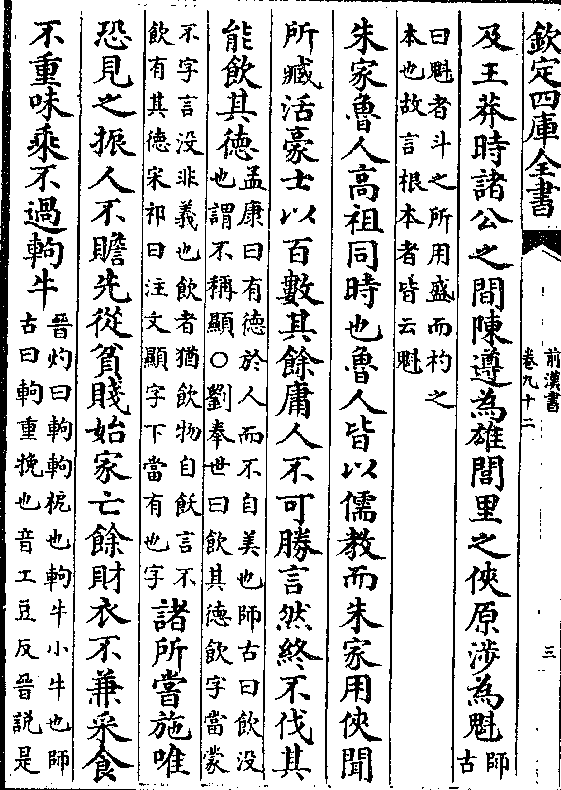 欽定四庫全書
前漢書
卷九十二
三
及王莽時諸公之間陳遵為雄閭里之俠原渉為魁師古
曰魁者斗之所用盛而杓之
本也故言根本者皆云魁
朱家魯人高祖同時也魯人皆以儒教而朱家用俠聞
所臧活豪士以百數其餘庸人不可勝言然終不伐其
能飲其徳孟康曰有德於人而不自美也師古曰飲没
也謂不稱顯○劉奉世曰飲其德飲字當蒙
不字言没非義也飲者猶飲物自飫言不
飲有其德宋祁曰注文顯字下當有也字諸所嘗施唯
恐見之振人不贍先從貧賤始家亡餘財衣不兼采食
不重味乘不過軥牛晉灼曰軥軥軛也軥牛小牛也師
古曰軥重挽也音工豆反晉説是